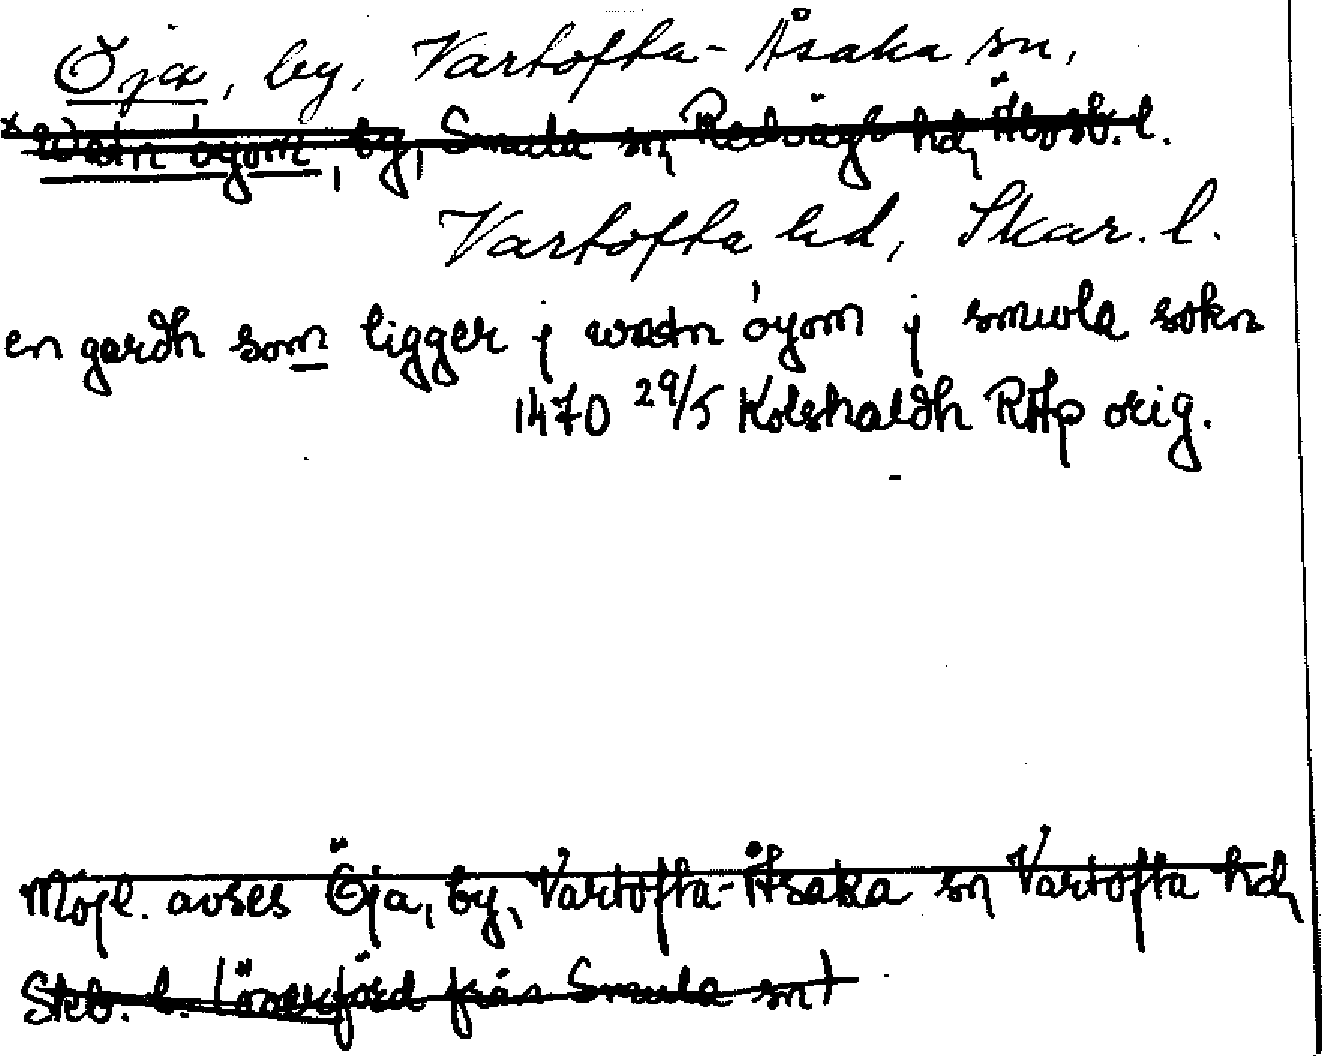 Öja, by, Vartofta-Åsaka sn,
× Wæstn öyom, by, Smula sn Redvägs hd Älvsb. l.
Vartofta hd, Skar. l.
en gardh som ligger j wæstn öyom j smwla sokn
1470 29/5 Kolshaldh RAp orig.
Möjl. avses Öja, by, Vartofta-Åsaka sn Vartofta hd
Skb. l. (överförd från Smula sn)